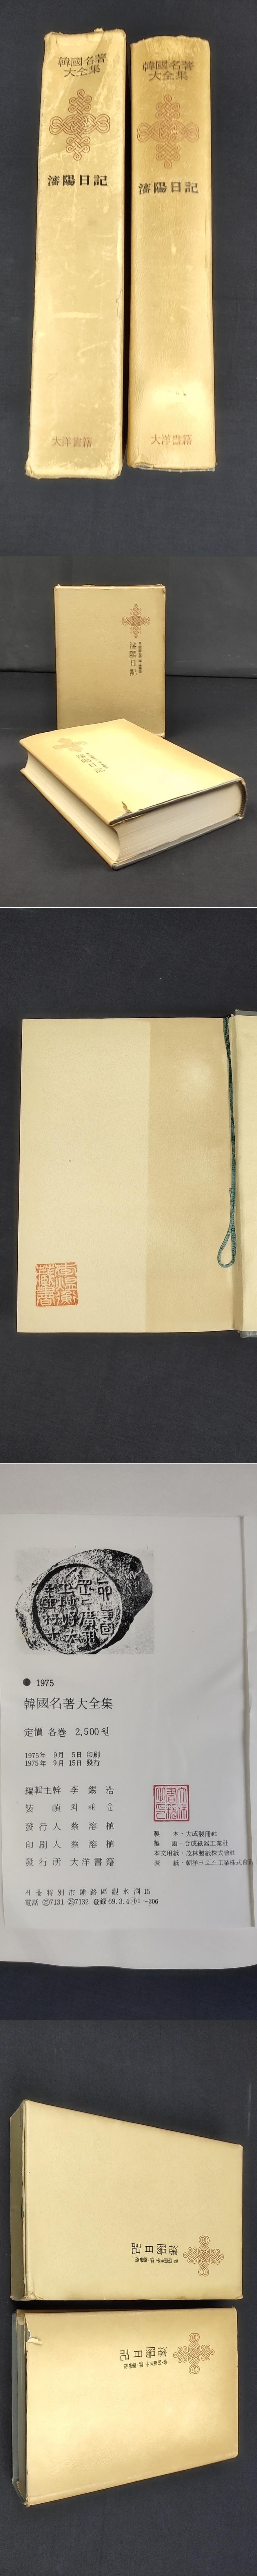 韓國名著
大全集
瀋陽日記
大洋書籍
韓國名著
大全集
瀋陽日記
大洋書籍
瀋陽日記
藏書
● 1975
韓國名著大全集
定價 各巻 2,500원
1975年 9月 5日 印刷
1975年 9月 15日 發行
編輯主幹 李錫浩
裝幀 최해운
發行人 蔡溶植
印刷人 蔡溶植
發行所 大洋書籍
製本・大成製册社
製函・合成紙器工業社
本文用紙・茂林製紙株式會社
表紙・朝洋크로스工業株式會社
서울特別市鍾路區觀水洞15
電話 7131 7132 登録69.3.4 1~206
瀋陽日記
瀋陽日記